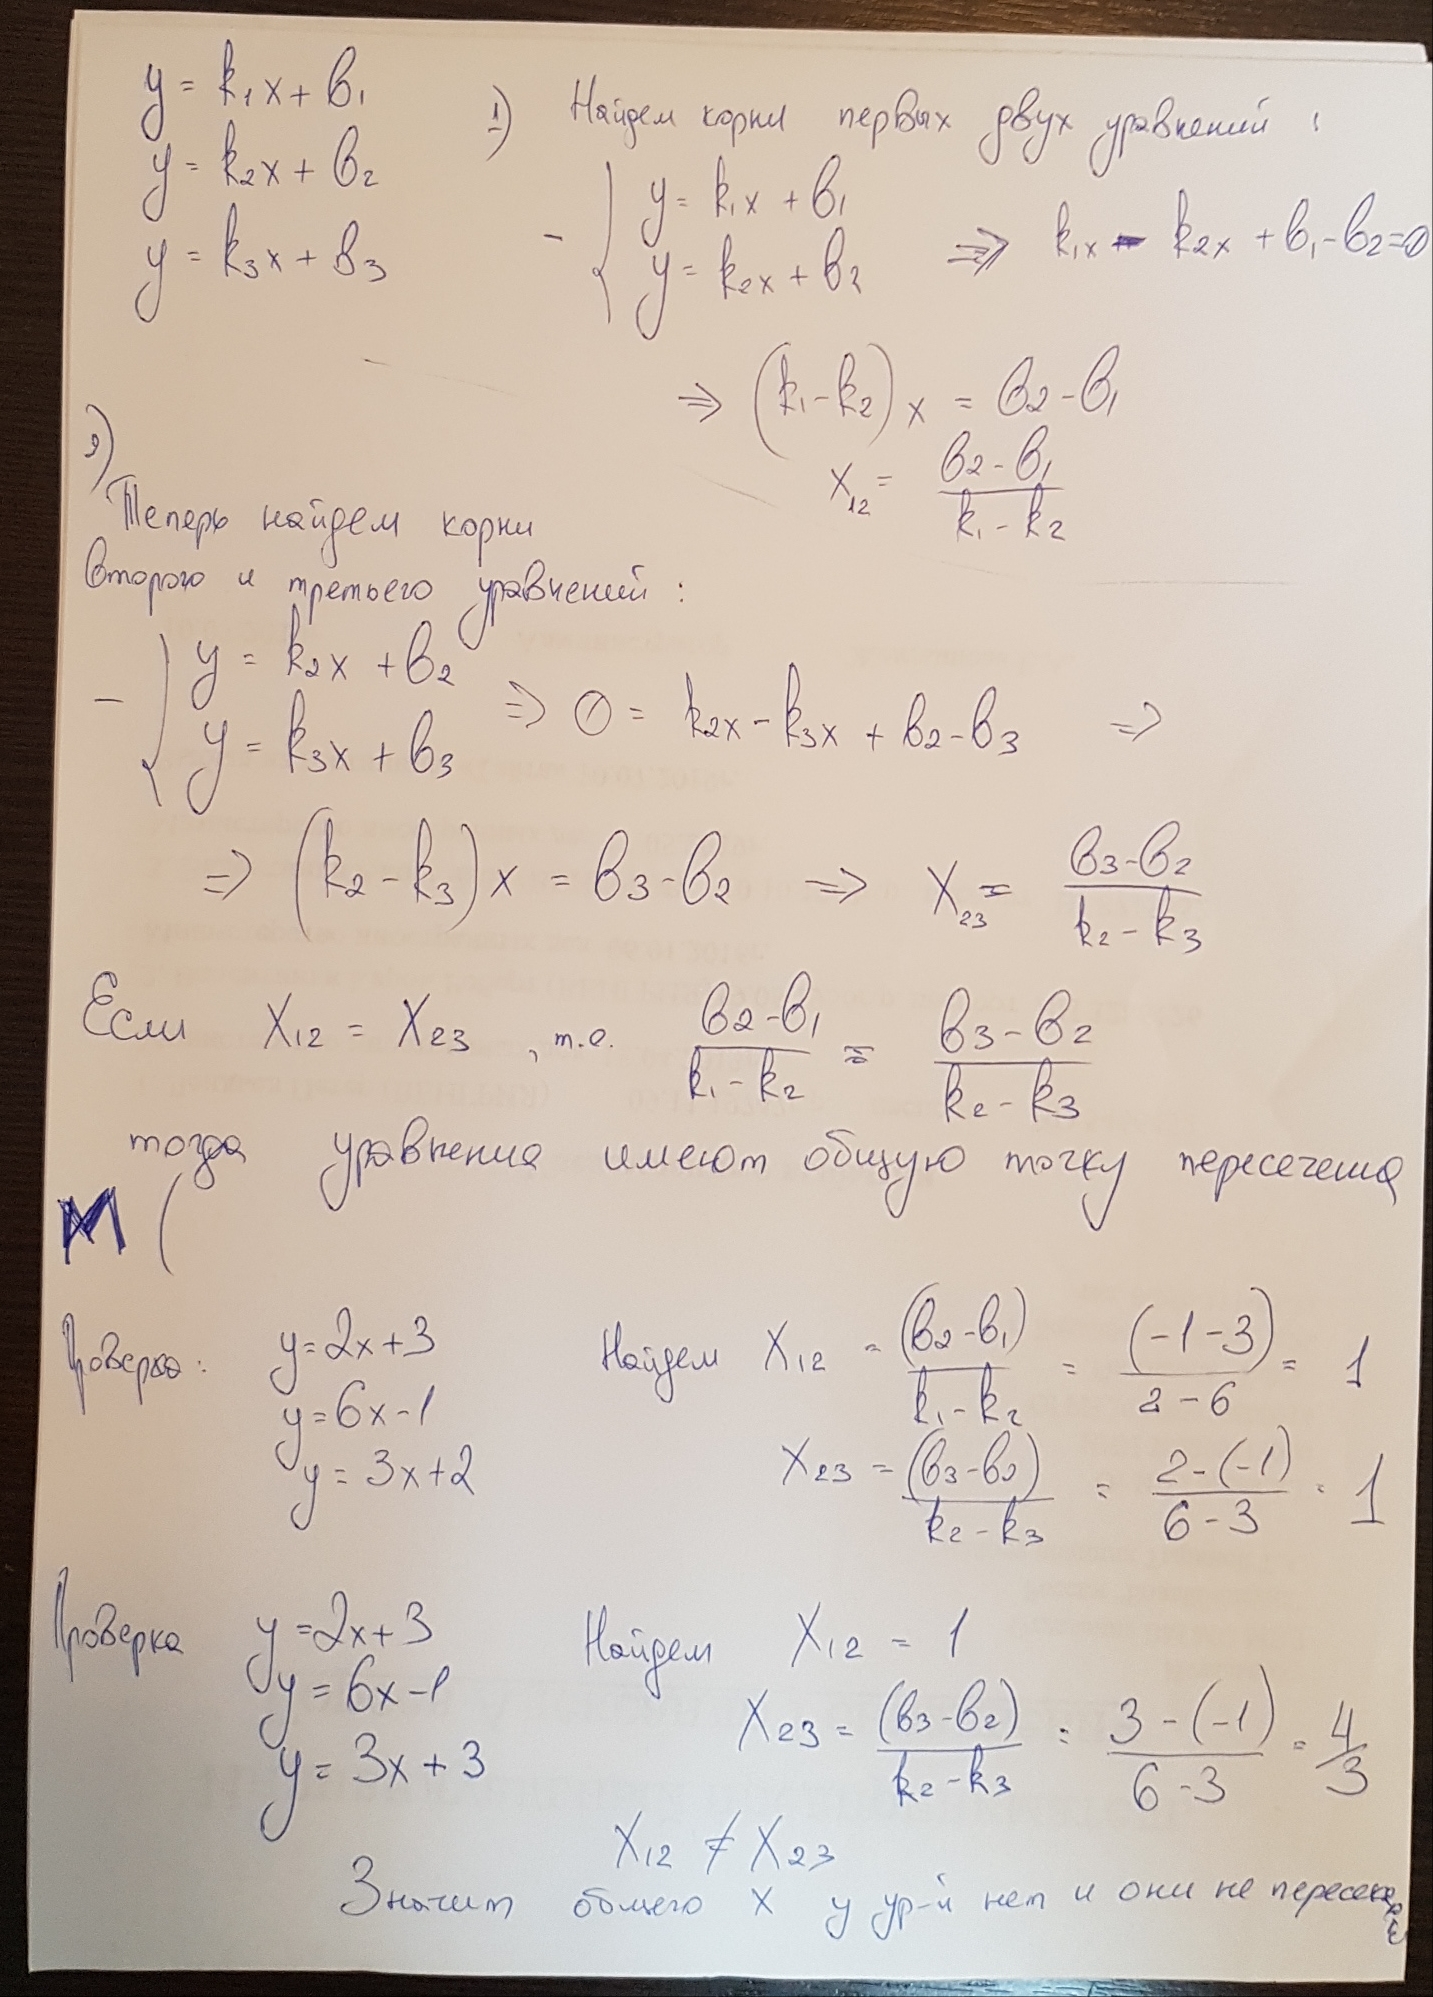 y = k₁x + b₁
y = k₂x + b₂
y = k₃x + b₃
1) Найдем корни первых двух уравнений :
- { y = k₁x + b₁
y = k₂x + b₂ ⇒ k₁x - k₂x + b₁ - b₂ = 0
⇒ (k₁ - k₂) x = b₂ - b₁
x₁₂ = (b₂ - b₁) / (k₁ - k₂)
2)
Теперь найдем корни
второго и третьего уравнений :
- { y = k₂x + b₂
y = k₃x + b₃ ⇒ 0 = k₂x - k₃x + b₂ - b₃ ⇒
⇒ (k₂ - k₃) x = b₃ - b₂ ⇒ x₂₃ = (b₃ - b₂) / (k₂ - k₃)
Если x₁₂ = x₂₃ , т.е. (b₂ - b₁) / (k₁ - k₂) = (b₃ - b₂) / (k₂ - k₃)
тогда уравнения имеют общую точку пересечения
M (
Проверка: y = 2x + 3
y = 6x - 1
y = 3x + 2
Найдем x₁₂ = (b₂ - b₁) / (k₁ - k₂) = (-1 - 3) / (2 - 6) = 1
x₂₃ = (b₃ - b₂) / (k₂ - k₃) = (2 - (-1)) / (6 - 3) = 1
Проверка y = 2x + 3
y = 6x - 1
y = 3x + 3
Найдем x₁₂ = 1
x₂₃ = (b₃ - b₂) / (k₂ - k₃) = (3 - (-1)) / (6 - 3) = 4/3
x₁₂ ≠ x₂₃
Значит общего x у ур-й нет и они не